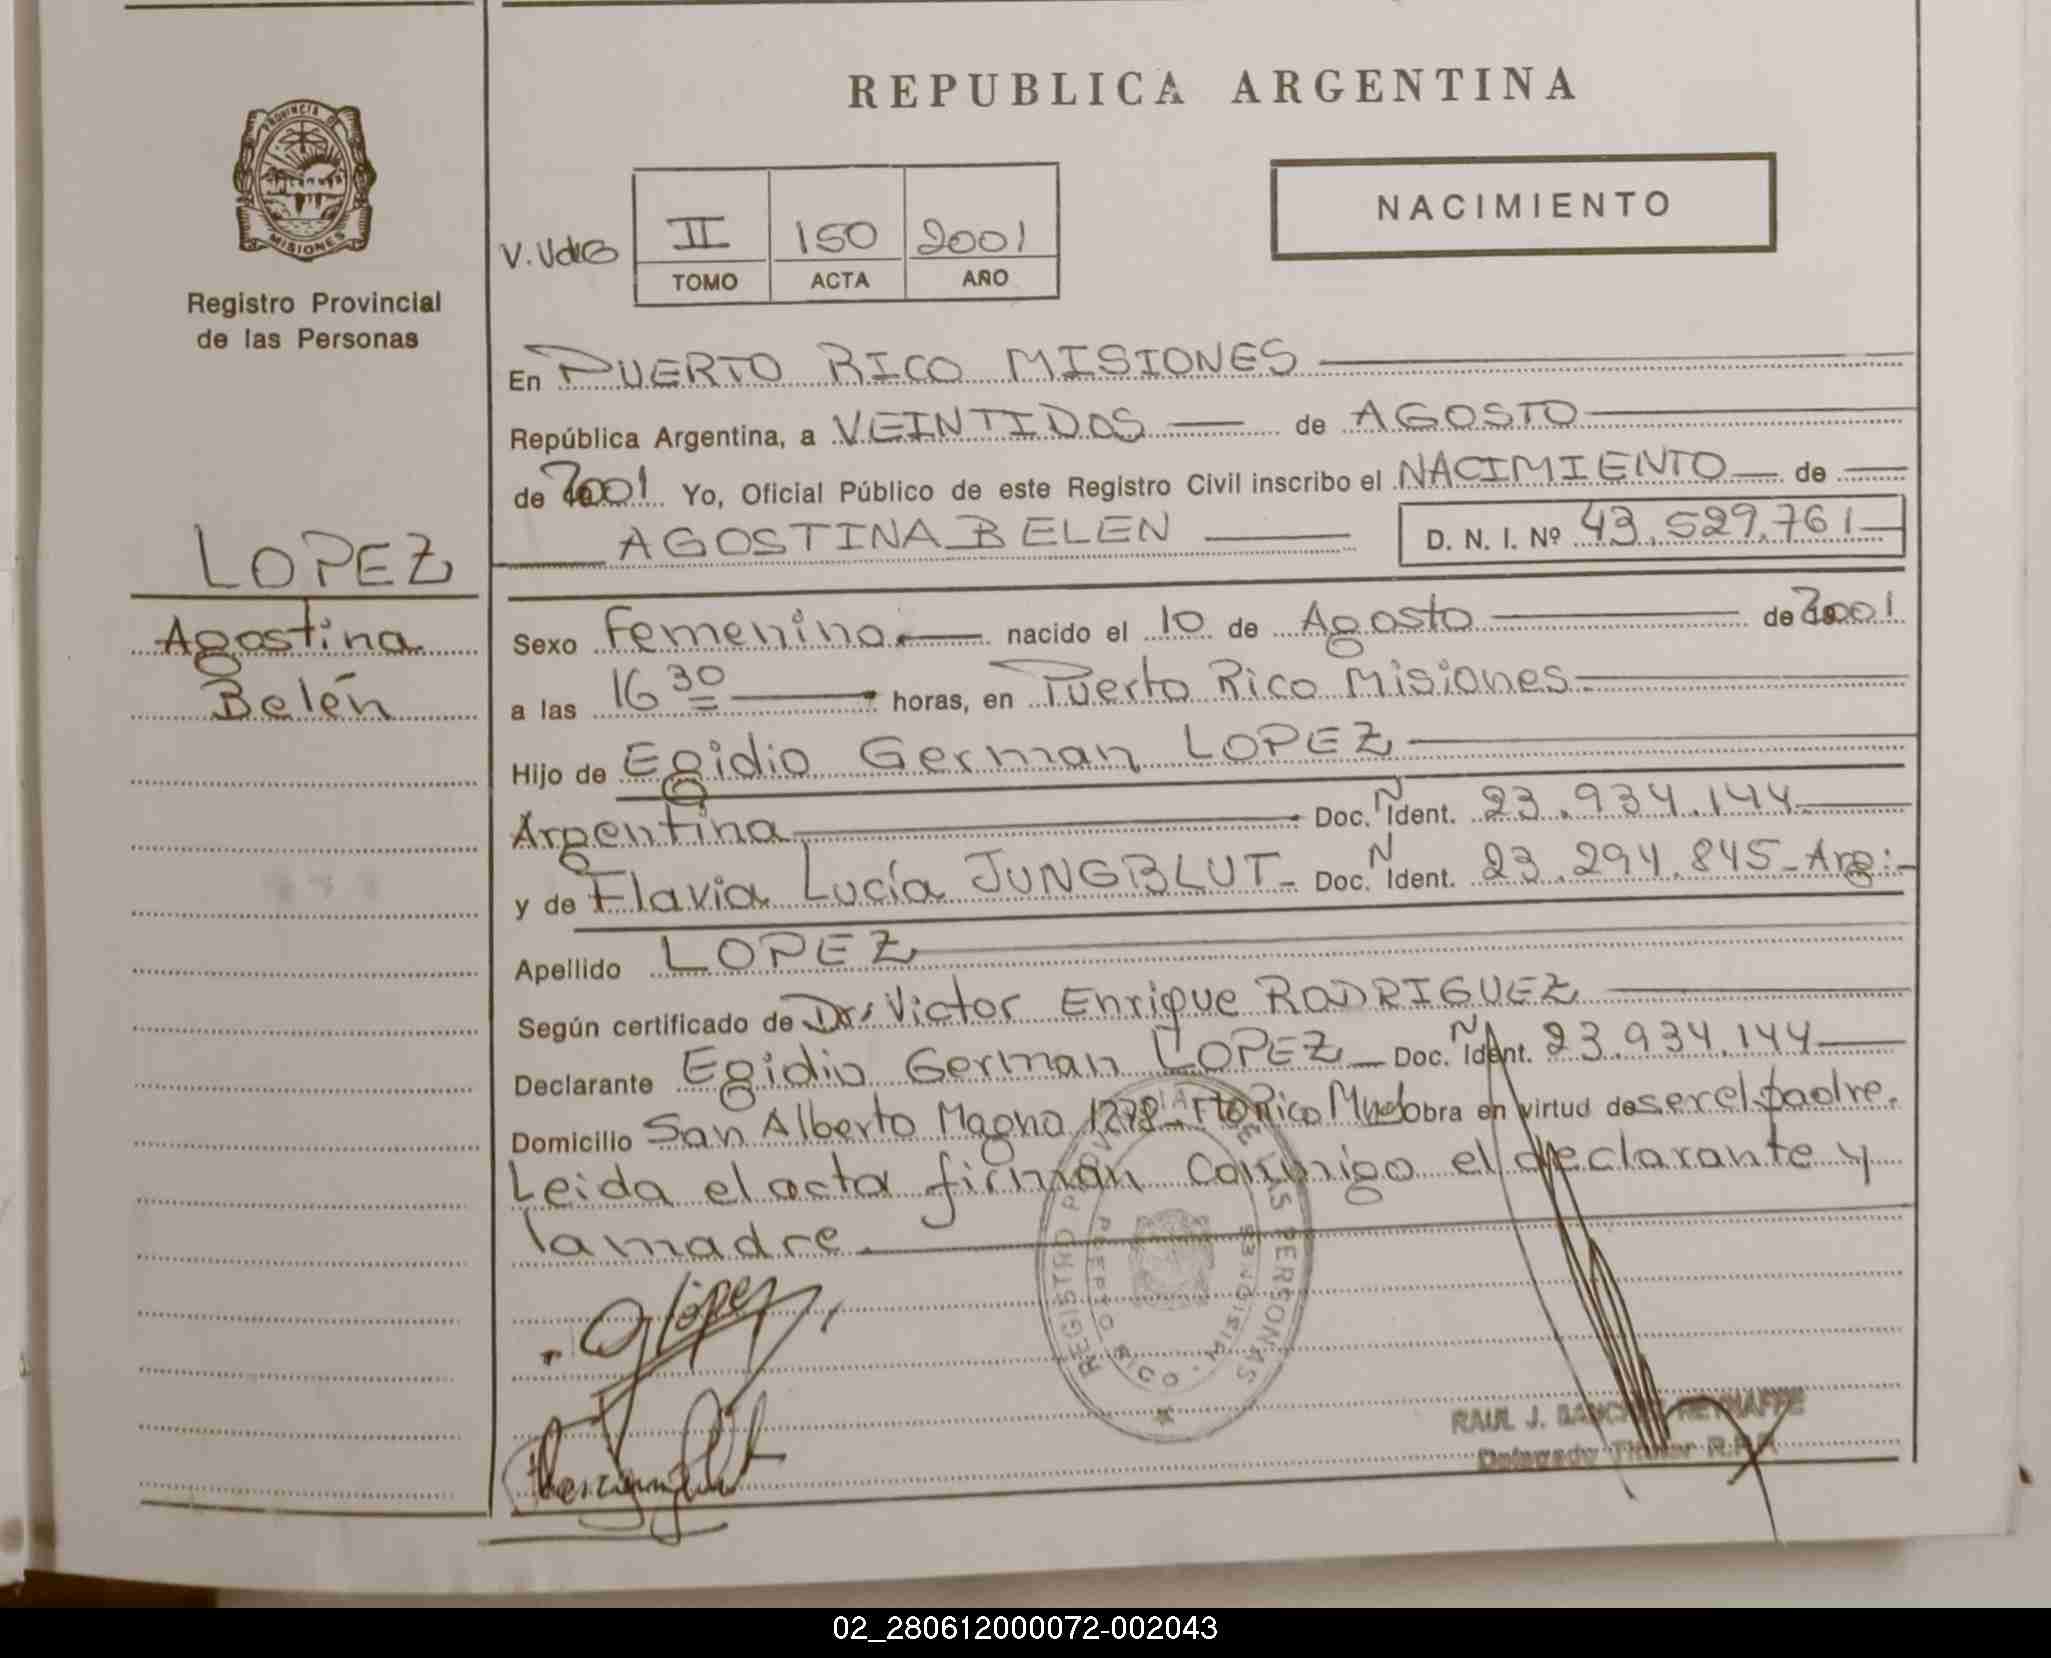 REPUBLICA ARGENTINA
PROVINCIA DE MISIONES
Registro Provincial
de las Personas
NACIMIENTO
II 150 2001
TOMO ACTA AÑO
En PUERTO RICO MISIONES
República Argentina, a VEINTIDOS de AGOSTO
de 2001 Yo, Oficial Público de este Registro Civil inscribo el NACIMIENTO de
AGOSTINA BELEN D. N. I. Nº 43.529.761
LOPEZ
Agostina
Belén
Sexo Femenino nacido el 10 de Agosto de 2001
a las 16 30 horas, en Puerto Rico Misiones
Hijo de Egidio German LOPEZ
Argentina Doc. N Ident. 23.934.144
y de Flavia Lucía JUNGBLUT Doc. N Ident. 23.294.845-Arg:-
Apellido LOPEZ
Según certificado de Dr. Victor Enrique RODRIGUEZ
Declarante Egidio German LOPEZ Doc. N Ident. 23.934.144
Domicilio San Alberto Magno 1278 Pto Rico obra en virtud de ser el padre.
Leida el acta firman conmigo el declarante y
la madre.
REGISTRO PROVINCIAL DE LAS PERSONAS
PUERTO RICO - MISIONES
López
RAUL J. SANCHEZ REYNAFFE
Delegado Titular R.P.P.
02_280612000072-002043